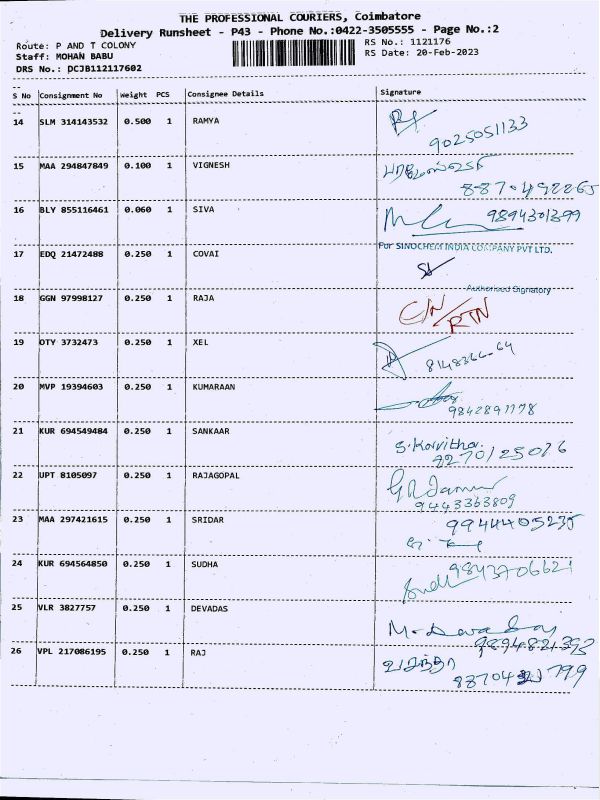 THE PROFESSIONAL COURIERS, Coimbatore
Delivery Runsheet - P43 - Phone No.:0422-3505555 - Page No.:2
Route: P AND T COLONY
RS No.: 1121176
Staff: MOHAN BABU
RS Date: 20-Feb-2023
DRS No.: DCJB112117602
S No Consignment No Weight PCS Consignee Details Signature
14 SLM 314143532 0.500 1 RAMYA
9025051133
15 MAA 294847849 0.100 1 VIGNESH
16 BLY 855116461 0.060 1 SIVA 9894301399
For SINOCHEM INDIA COMPANY PVT LTD.
17 EDQ 21472488 0.250 1 COVAI
Authorised Signatory
18 GGN 97998127 0.250 1 RAJA
C/N/RTN
19 OTY 3732473 0.250 1 XEL
20 MVP 19394603 0.250 1 KUMARAAN
9842891178
21 KUR 694549484 0.250 1 SANKAAR
S. Kavitha
22 UPT 8105097 0.250 1 RAJAGOPAL
9443363809
23 MAA 297421615 0.250 1 SRIDAR 9944405235
24 KUR 694564850 0.250 1 SUDHA 9843706621
25 VLR 3827757 0.250 1 DEVADAS
26 VPL 217086195 0.250 1 RAJ